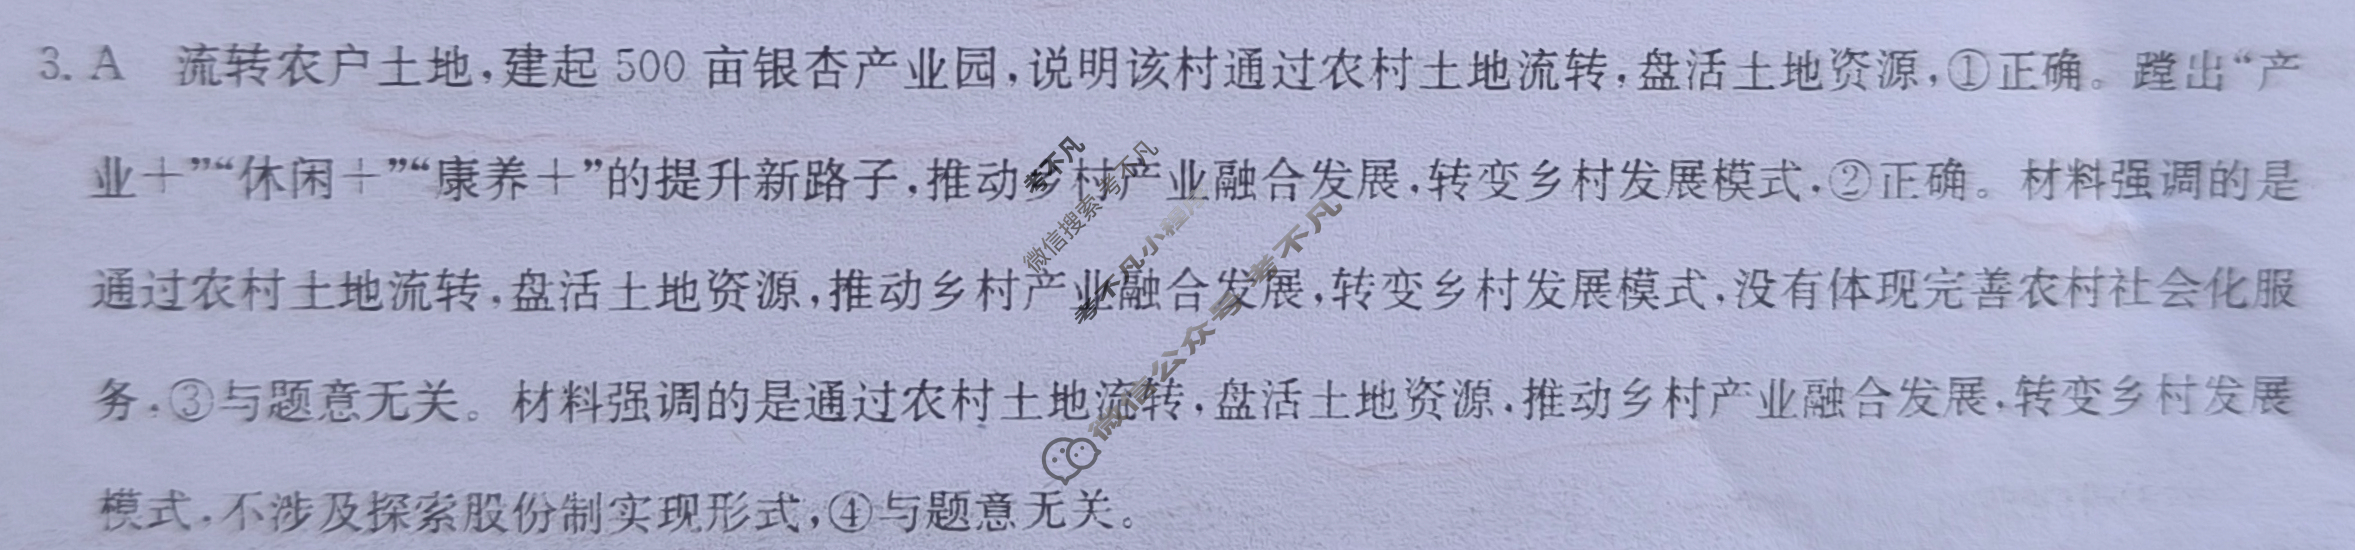 3. A 流转农户土地,建起 500 亩银杏产业园,说明该村通过农村土地流转,盘活土地资源,①正确。蹚出“产
业+”“休闲+”“康养+”的提升新路子,推动乡村产业融合发展,转变乡村发展模式,②正确。材料强调的是
通过农村土地流转,盘活土地资源,推动乡村产业融合发展,转变乡村发展模式,没有体现完善农村社会化服
务,③与题意无关。材料强调的是通过农村土地流转,盘活土地资源,推动乡村产业融合发展,转变乡村发展
模式,不涉及探索股份制实现形式,④与题意无关。
考不凡
微信搜索 考不凡
考不凡小程序
微信公众号 考不凡